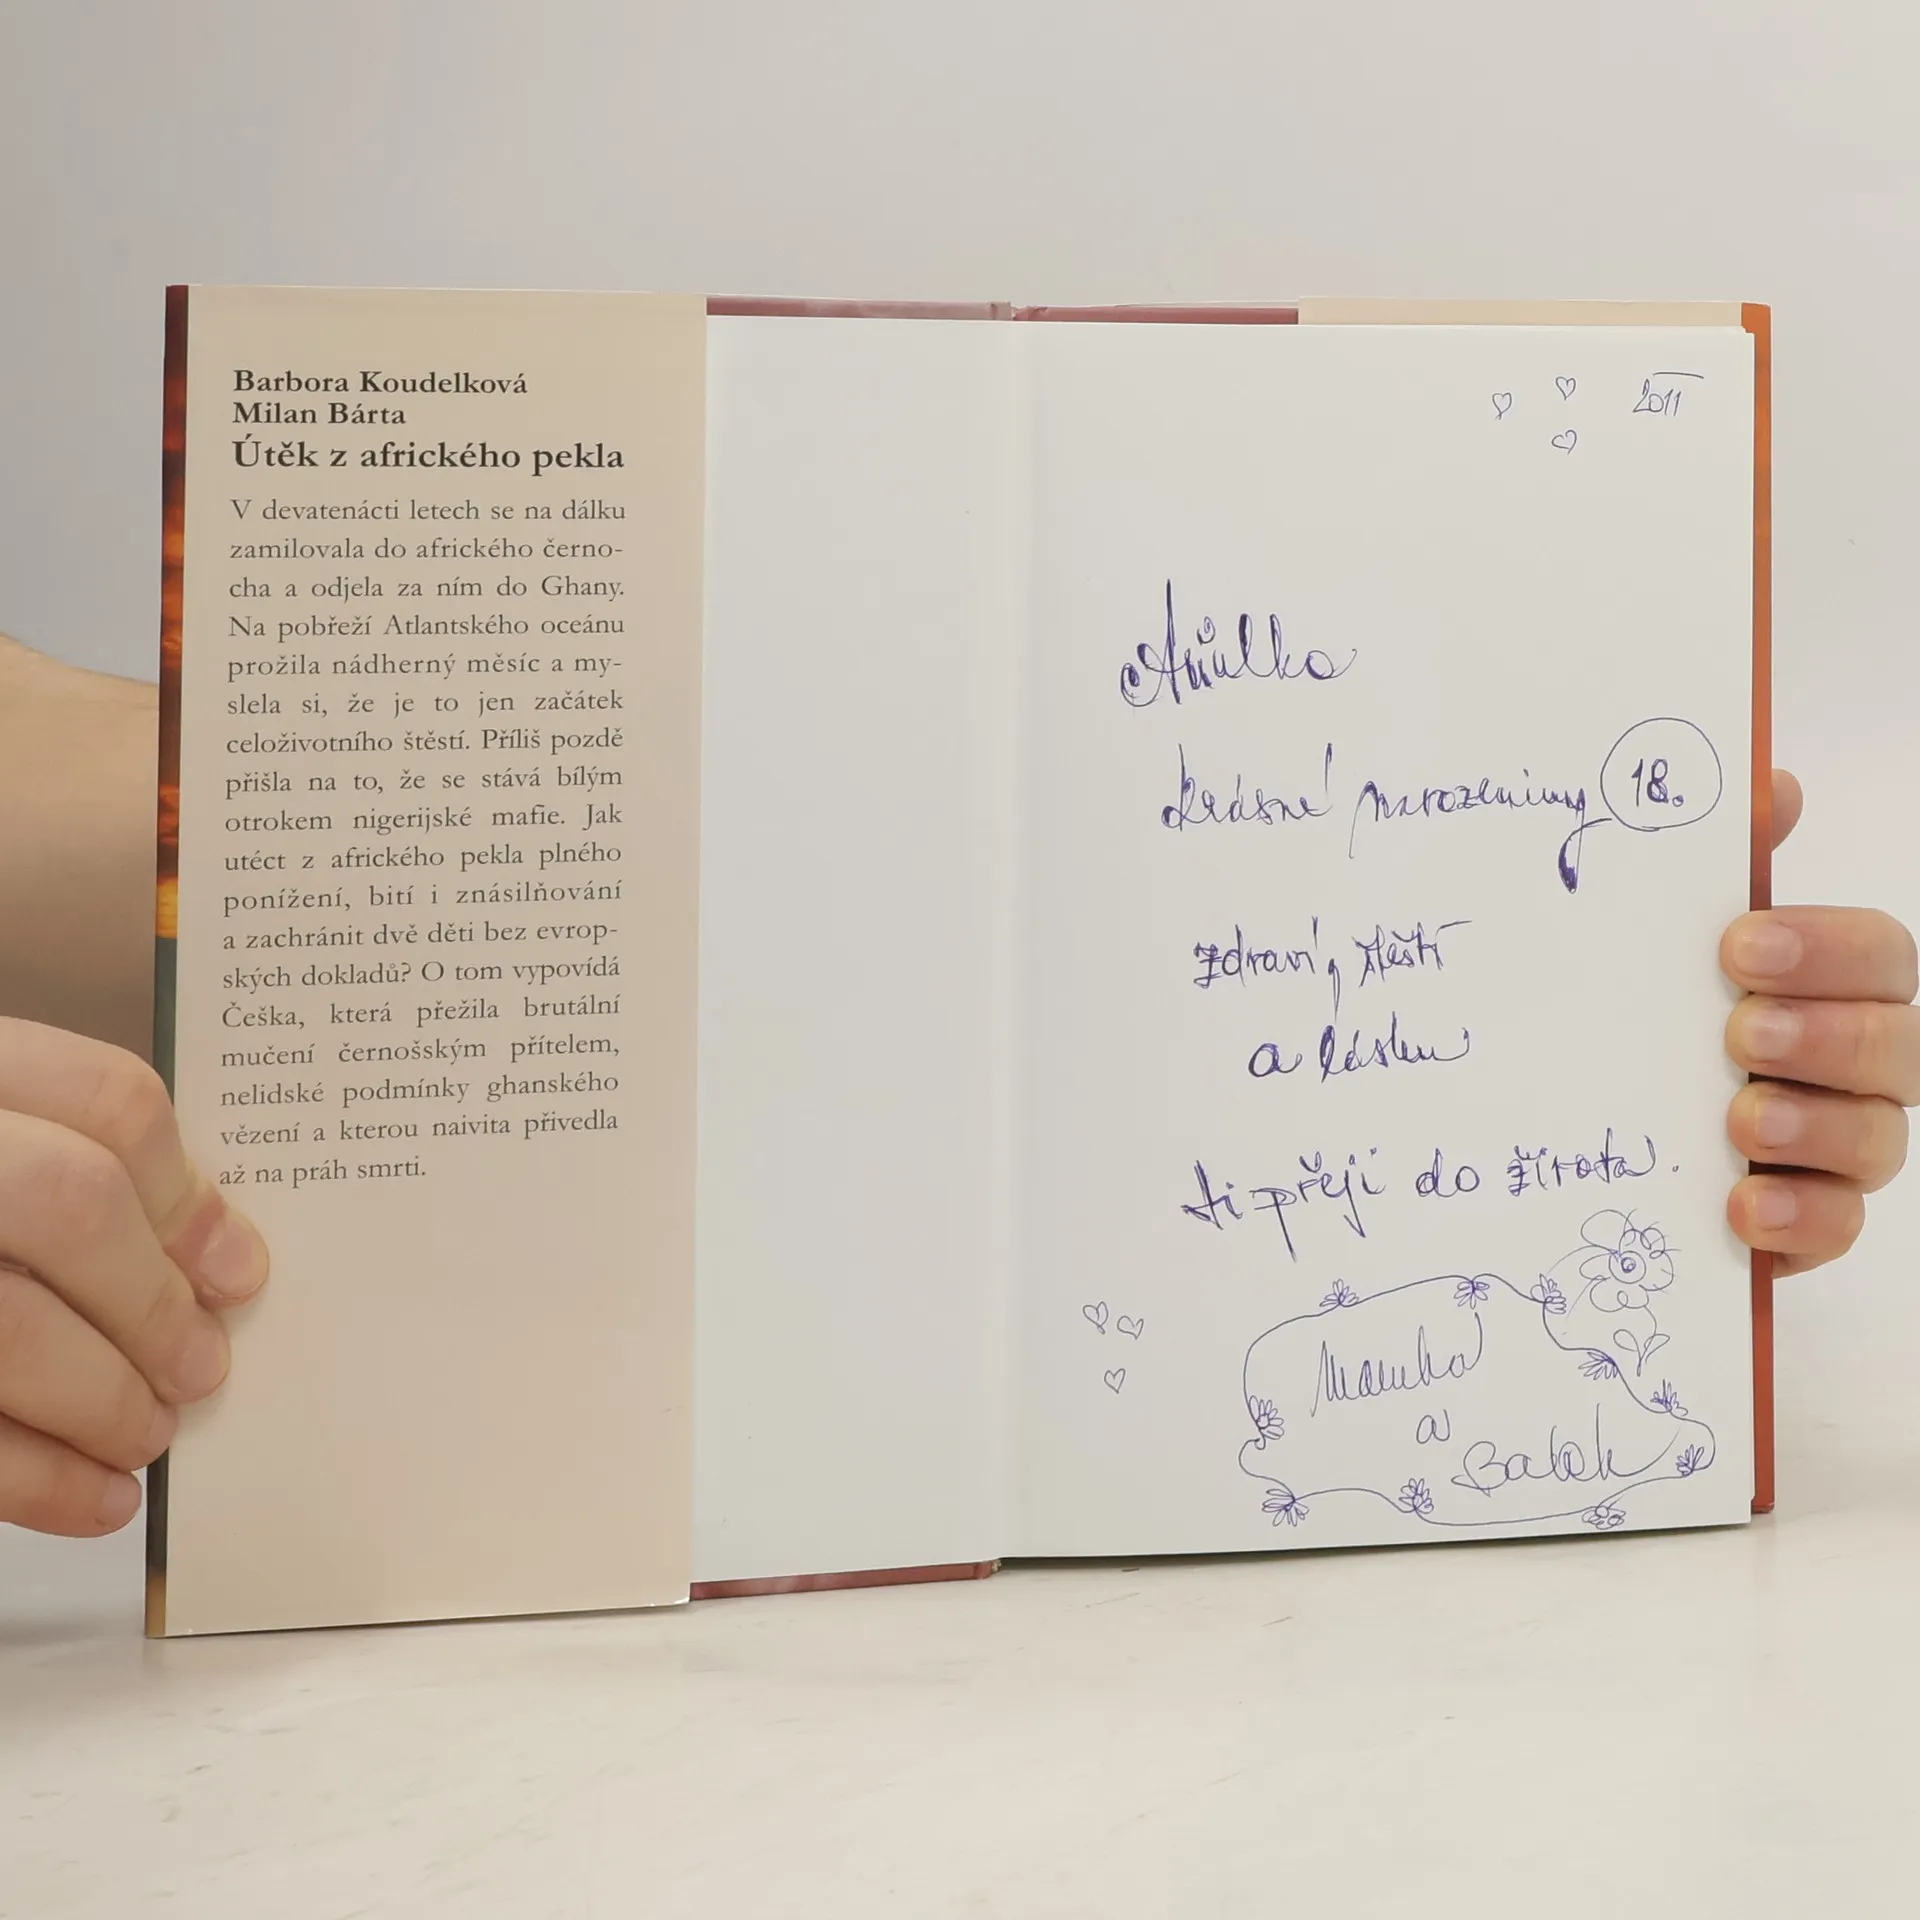 Barbora Koudelková
Milan Bárta
Útěk z afrického pekla
V devatenácti letech se na dálku
zamilovala do afrického černo-
cha a odjela za ním do Ghany.
Na pobřeží Atlantského oceánu
prožila nádherný měsíc a my-
slela si, že je to jen začátek
celoživotního štěstí. Příliš pozdě
přišla na to, že se stává bílým
otrokem nigerijské mafie. Jak
utéct z afrického pekla plného
ponížení, bití i znásilňování
a zachránit dvě děti bez evrop-
ských dokladů? O tom vypovídá
Češka, která přežila brutální
mučení černošským přítelem,
nelidské podmínky ghanského
vězení a kterou naivita přivedla
až na práh smrti.
2011
krásné narozeniny 18.
zdraví, štěstí
a lásku
ti přeji do života.
a